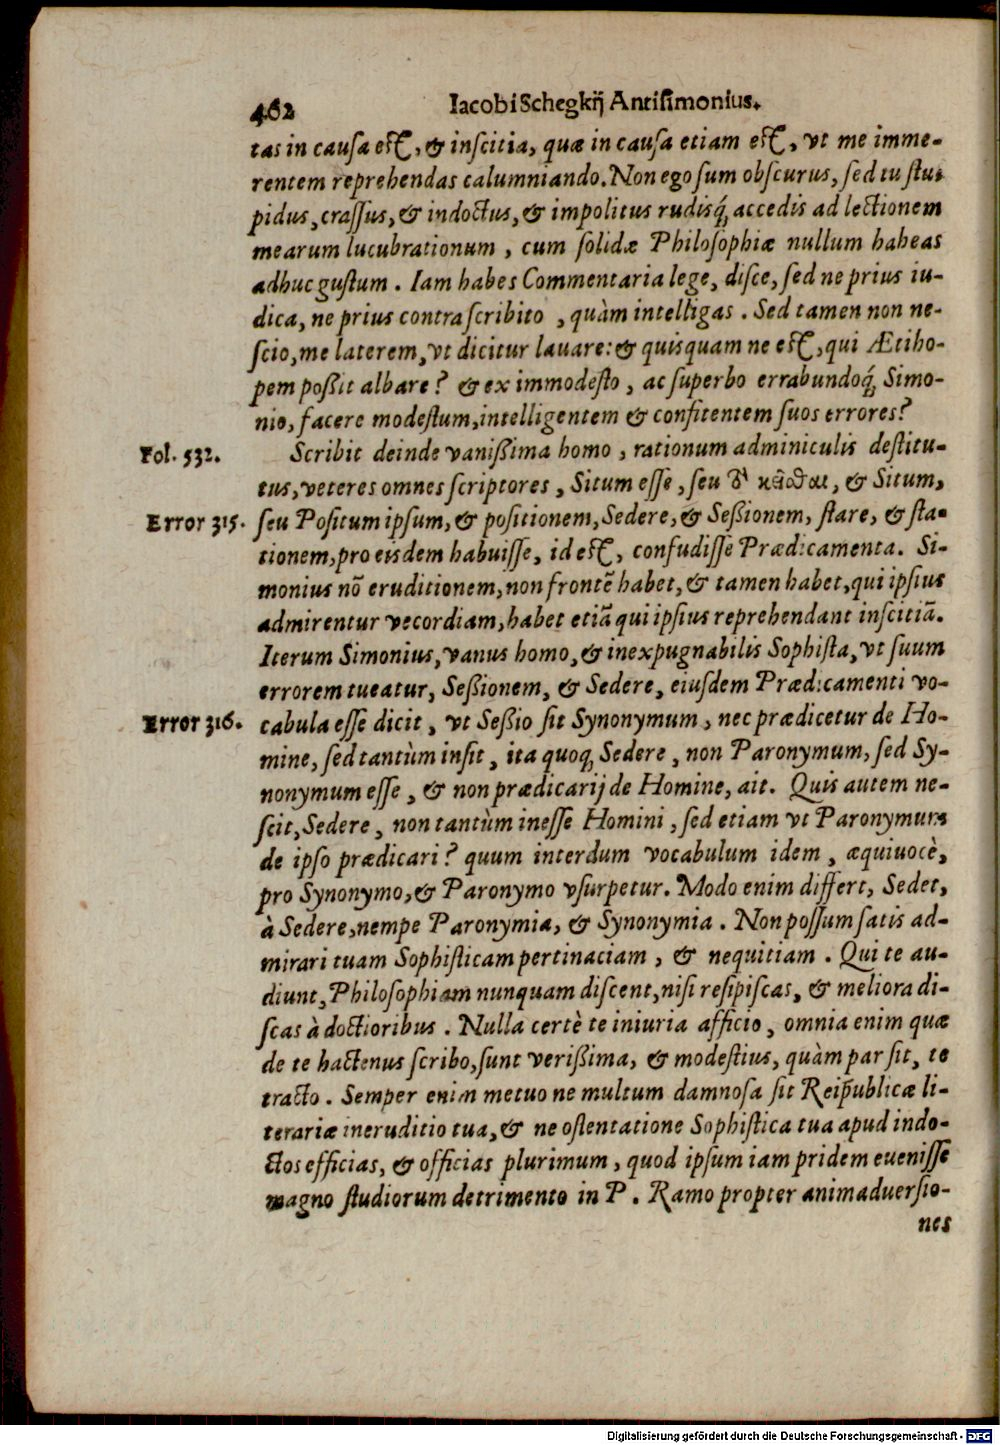 462 Iacobi Schegkij Antisimonius.
tas in causa est, & inscitia, quæ in causa etiam est, vt me imme-
rentem reprehendas calumniando. Non ego sum obscurus, sed tu stu-
pidus, crassus, & indoctus, & impolitus rudisq́; accedis ad lectionem
mearum lucubrationum, cum solidæ Philosophiæ nullum habeas
adhuc gustum. Iam habes Commentaria lege, disce, sed ne prius iu-
dica, ne prius contra scribito, quàm intelligas. Sed tamen non ne-
scio, me laterem, vt dicitur lauare: & quisquam ne est, qui Ætiho-
pem poßit albare? & ex immodesto, ac superbo errabundoq́; Simo-
nio, facere modestum, intelligentem & confitentem suos errores?
Fol. 532. Scribit deinde vanißima homo, rationum adminiculis destitu-
tus, veteres omnes scriptores, Situm esse, seu τὸ κεῖσθαι, & Situm,
Error 315. seu Positum ipsum, & positionem, Sedere, & Seßionem, stare, & sta-
tionem, pro eisdem habuisse, id est, confudisse Prædicamenta. Si-
monius nō eruditionem, non frontē habet, & tamen habet, qui ipsius
admirentur vecordiam, habet etiā qui ipsius reprehendant inscitiā.
Iterum Simonius, vanus homo, & inexpugnabilis Sophista, vt suum
errorem tueatur, Seßionem, & Sedere, eiusdem Prædicamenti vo-
Error 316. cabula esse dicit, vt Seßio sit Synonymum, nec prædicetur de Ho-
mine, sed tantùm insit, ita quoq; Sedere, non Paronymum, sed Sy-
nonymum esse, & non prædicarij de Homine, ait. Quis autem ne-
scit, Sedere, non tantùm inesse Homini, sed etiam vt Paronymum
de ipso prædicari? quum interdum vocabulum idem, æquiuocè,
pro Synonymo, & Paronymo vsurpetur. Modo enim differt, Sedet,
à Sedere, nempe Paronymia, & Synonymia. Non possum satis ad-
mirari tuam Sophisticam pertinaciam, & nequitiam. Qui te au-
diunt, Philosophiam nunquam discent, nisi resipiscas, & meliora di-
scas à doctioribus. Nulla certè te iniuria afficio, omnia enim quæ
de te hactenus scribo, sunt verißima, & modestius, quàm par sit, te
tracto. Semper enim metuo ne multum damnosa sit Reip̄ublicæ li-
terariæ ineruditio tua, & ne ostentatione Sophistica tua apud indo-
ctos efficias, & officias plurimum, quod ipsum iam pridem euenisse
magno studiorum detrimento in P. Ramo propter animaduersio-
nes
Digitalisierung gefördert durch die Deutsche Forschungsgemeinschaft - DFG